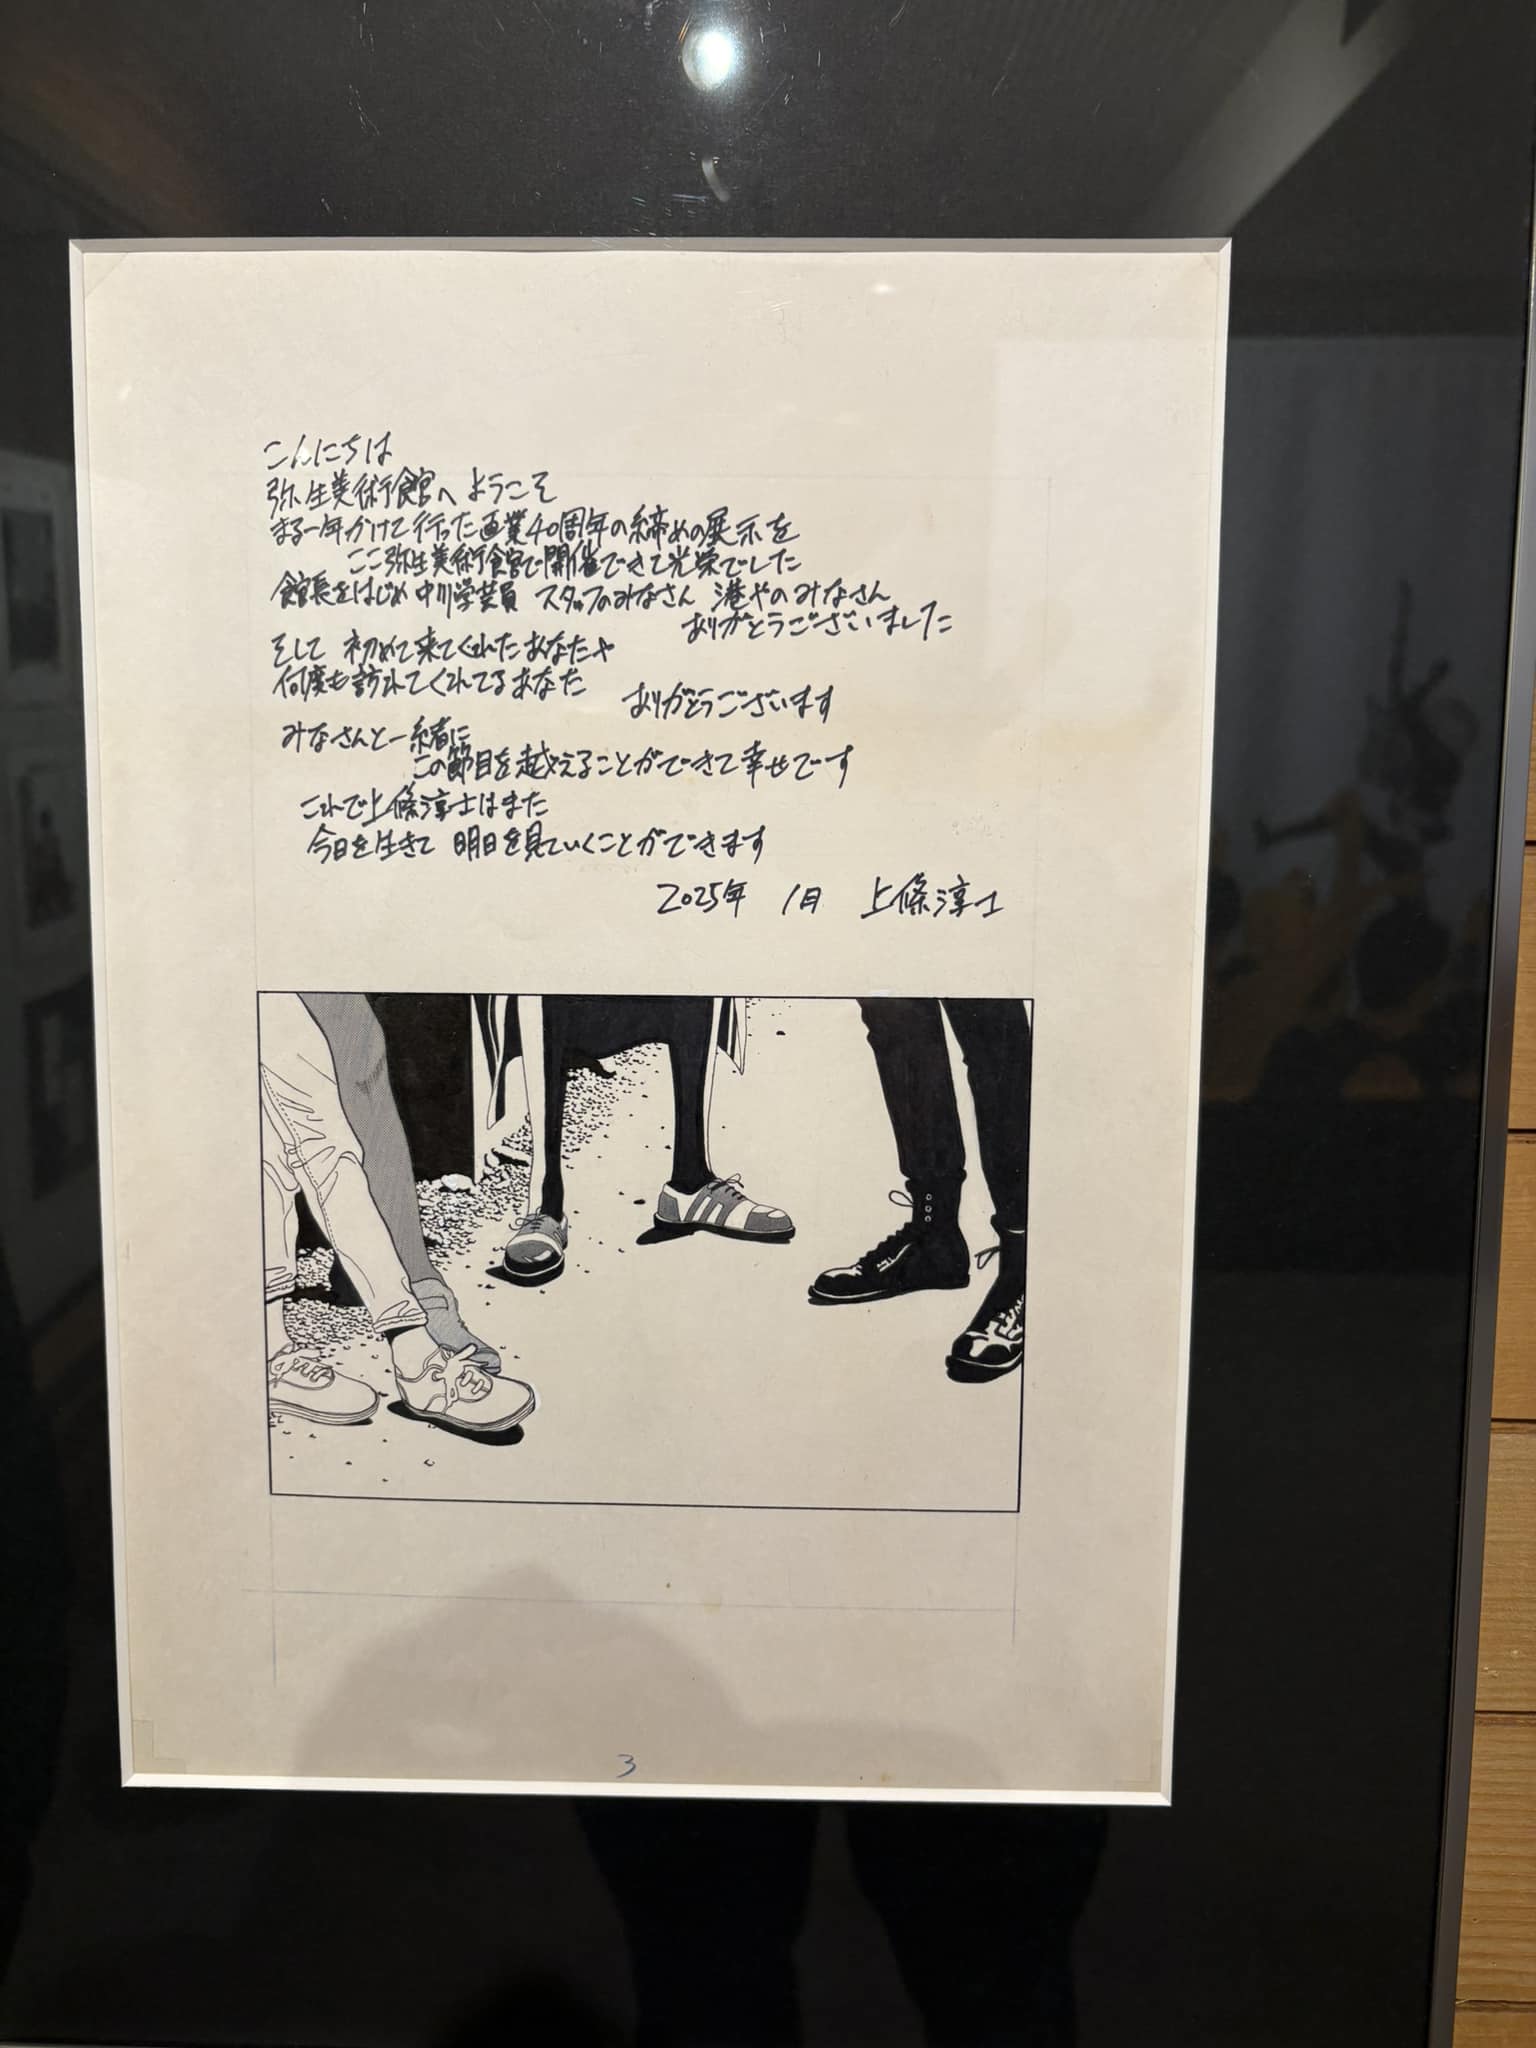 こんにちは
弥生美術館へ ようこそ
まる一年かけて行った画業40周年の締めの展示を
ここ弥生美術館で開催できて光栄でした
館長をはじめ 中川学芸員 スタッフのみなさん 港やのみなさん
ありがとうございました
そして 初めて来てくれたあなたや
何度も訪れてくれてるあなた
ありがとうございます
みなさんと一緒に
この節目を越えることができて幸せです
これで上條淳士はまた
今日を生きて 明日を見ていくことができます
2025年 1月 上條淳士
3